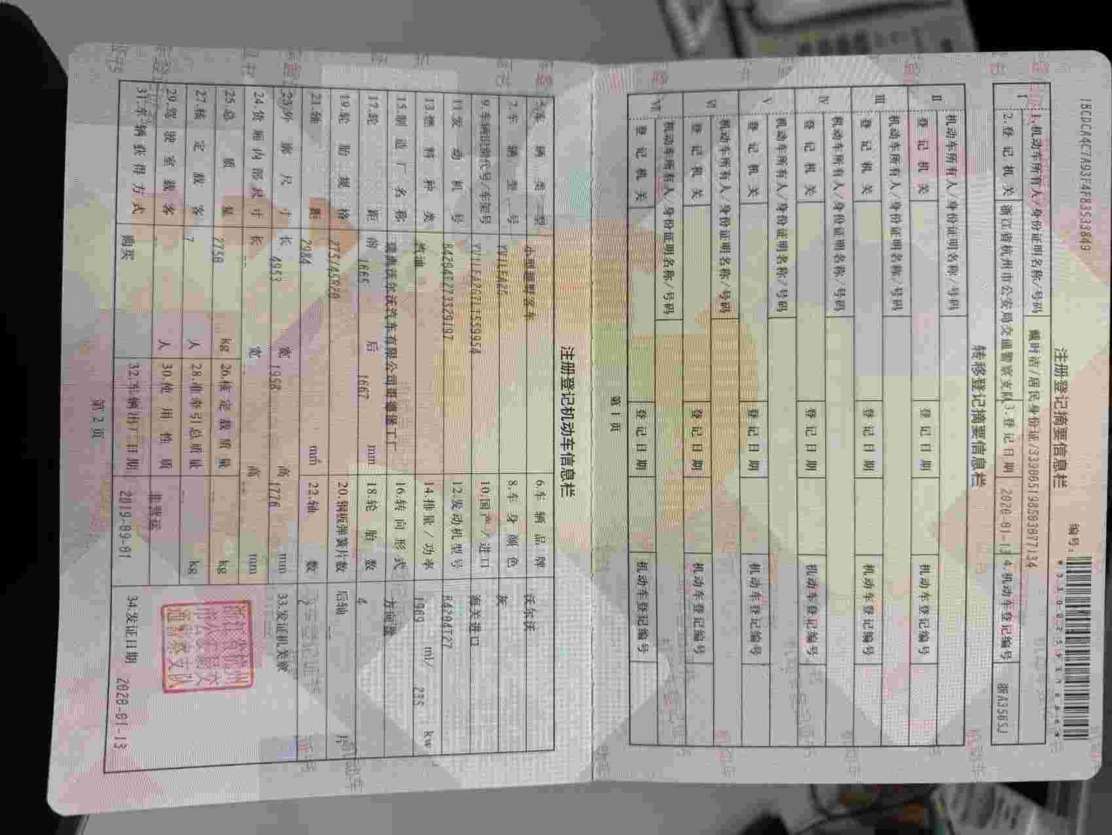 注册登记摘要信息栏
编号:
Ⅰ 1.机动车所有人/身份证明名称/号码
2.登记机关 浙江省杭州市公安局交通警察支队 3.登记日期 2020-01-13 4.机动车登记编号
转移登记摘要信息栏
Ⅱ 机动车所有人/身份证明名称/号码
登记机关 登记日期 机动车登记编号
Ⅲ 机动车所有人/身份证明名称/号码
登记机关 登记日期 机动车登记编号
Ⅳ 机动车所有人/身份证明名称/号码
登记机关 登记日期 机动车登记编号
Ⅴ 机动车所有人/身份证明名称/号码
登记机关 登记日期 机动车登记编号
Ⅵ 机动车所有人/身份证明名称/号码
登记机关 登记日期 机动车登记编号
Ⅶ 机动车所有人/身份证明名称/号码
登记机关 登记日期 机动车登记编号
第 1 页
注册登记机动车信息栏
5.车辆类型 小型越野客车 6.车辆品牌 沃尔沃
7.车辆型号 8.车身颜色 灰
9.车辆识别代号/车架号 10.国产/进口 海关进口
11.发动机号 12.发动机型号 B4204T27
13.燃料种类 汽油 14.排量/功率 1969 ml/ 235 kw
15.制造厂名称 瑞典沃尔沃汽车有限公司哥德堡工厂 16.转向形式 方向盘
17.轮距 前 1665 后 1667 mm 18.轮胎数 4
19.轮胎规格 275/45R20 20.钢板弹簧片数 后轴 片
21.轴距 2984 mm 22.轴数 2
23.外廓尺寸 长 4953 宽 1958 高 1776 mm 33.发证机关章
24.货厢内部尺寸 长 宽 高 mm
25.总质量 2750 kg 26.核定载质量 kg
27.核定载客 7 人 28.准牵引总质量 kg
29.驾驶室载客 人 30.使用性质 非营运
31.车辆获得方式 购买 32.车辆出厂日期 2019-09-01 34.发证日期 2020-01-13
第 2 页